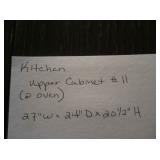 Kitchen
Upper Cabinet #11
(2 oven)
27"W x 24"D x 20½"H